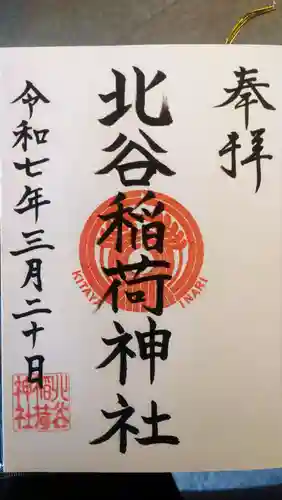 奉拝
北谷稲荷神社
KITAYA INARI
令和七年三月二十日
北谷稲荷神社